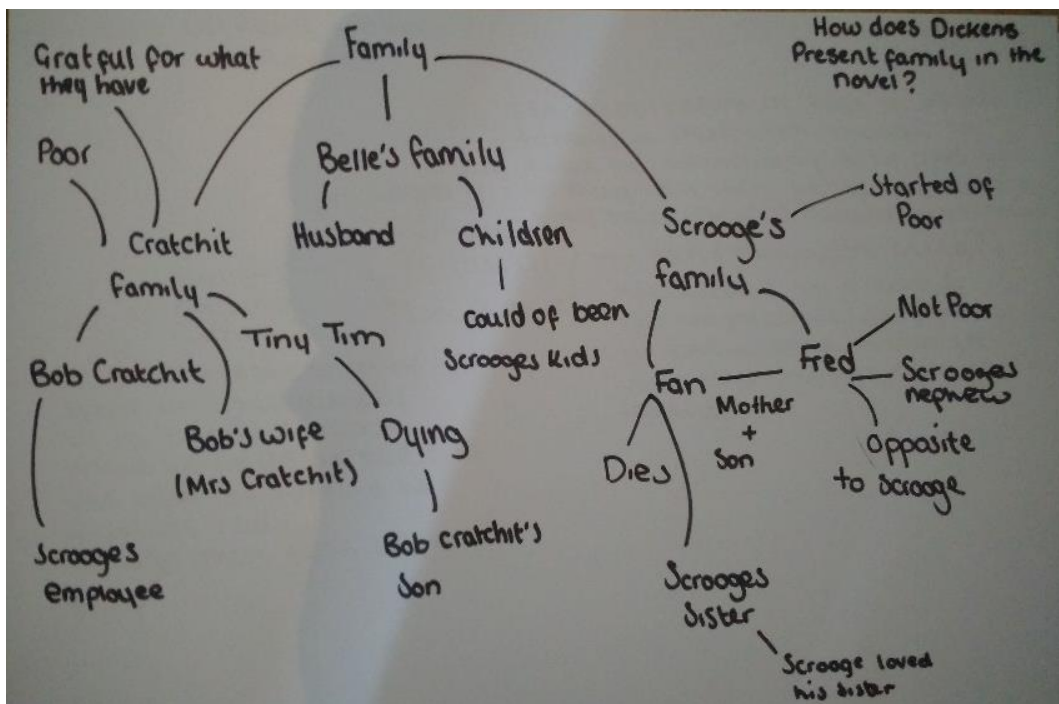 How does Dickens
Present family in the
novel?
Family
Gratful for what
they have
Poor
Cratchit
family
Bob Cratchit
Scrooges
employee
Bob's wife
(Mrs Cratchit)
Tiny Tim
Dying
Bob Cratchit's
son
Belle's family
Husband
Children
Could of been
Scrooges kids
Scrooge's
family
Started of
Poor
Fan
Mother
+
son
Fred
Not Poor
Scrooges
nephew
Opposite
to scrooge
Dies
Scrooges
sister
Scrooge loved
his sister